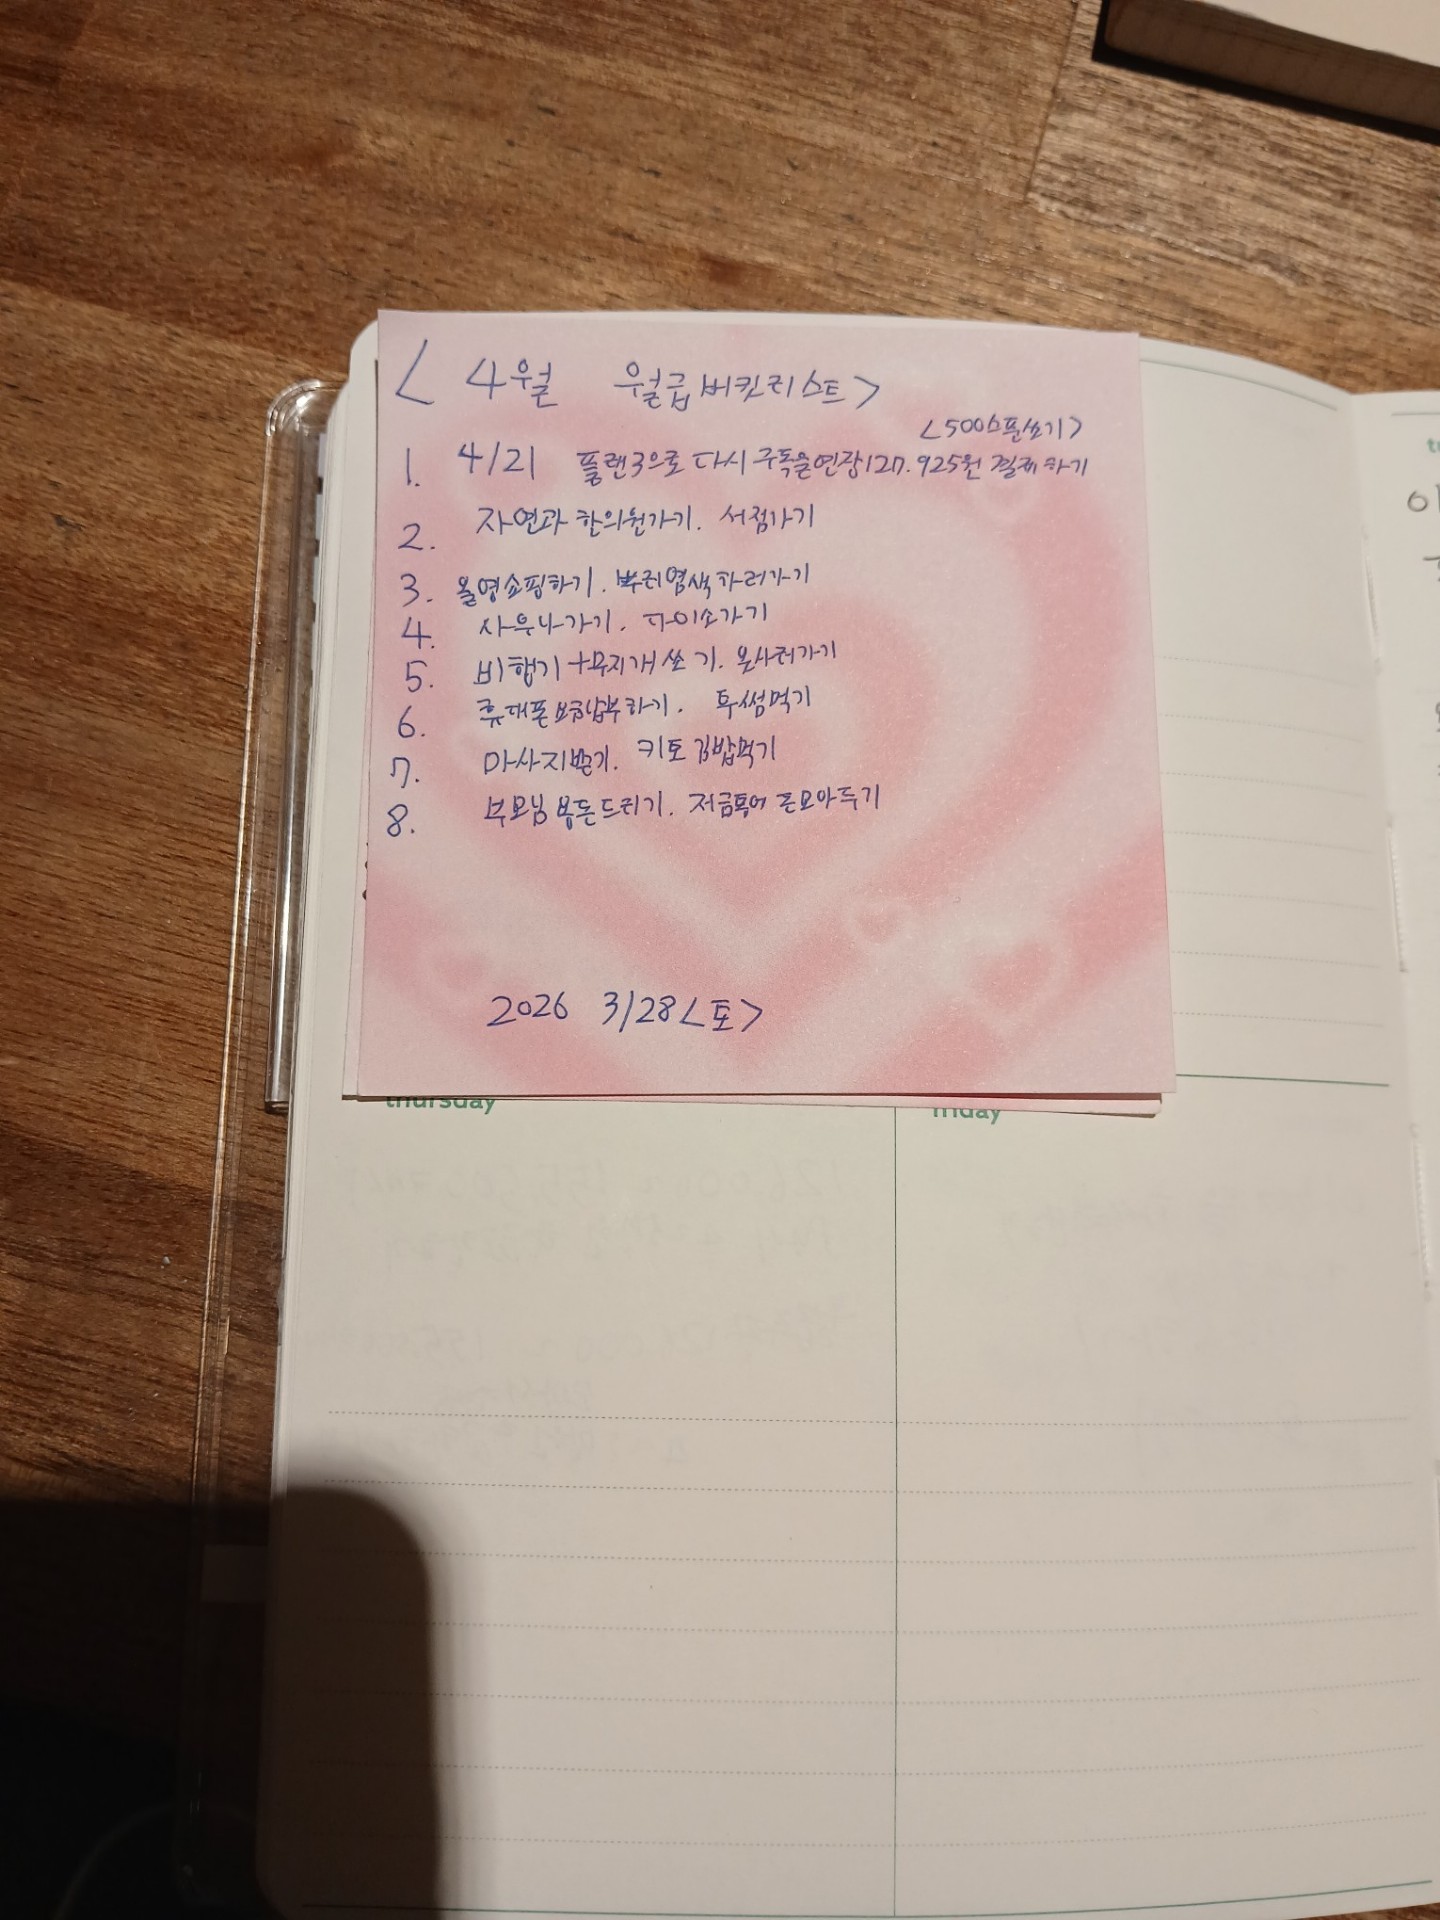 < 4월 월급버킷리스트>
<500스푼쓰기>
1. 4/21 플랜3으로 다시 구독을연장127.925원 결제하기
2. 자연과 한의원가기. 서점가기
3. 올영쇼핑하기. 뿌리염색하러가기
4. 사우나가기. 다이소가기
5. 비행기+무지개쏘기. 옷사러가기
6. 휴대폰요금납부하기. 투썸먹기
7. 마사지받기. 키토김밥먹기
8. 부모님용돈드리기. 저금통에 돈모아두기
2026 3/28<토>
thursday
friday